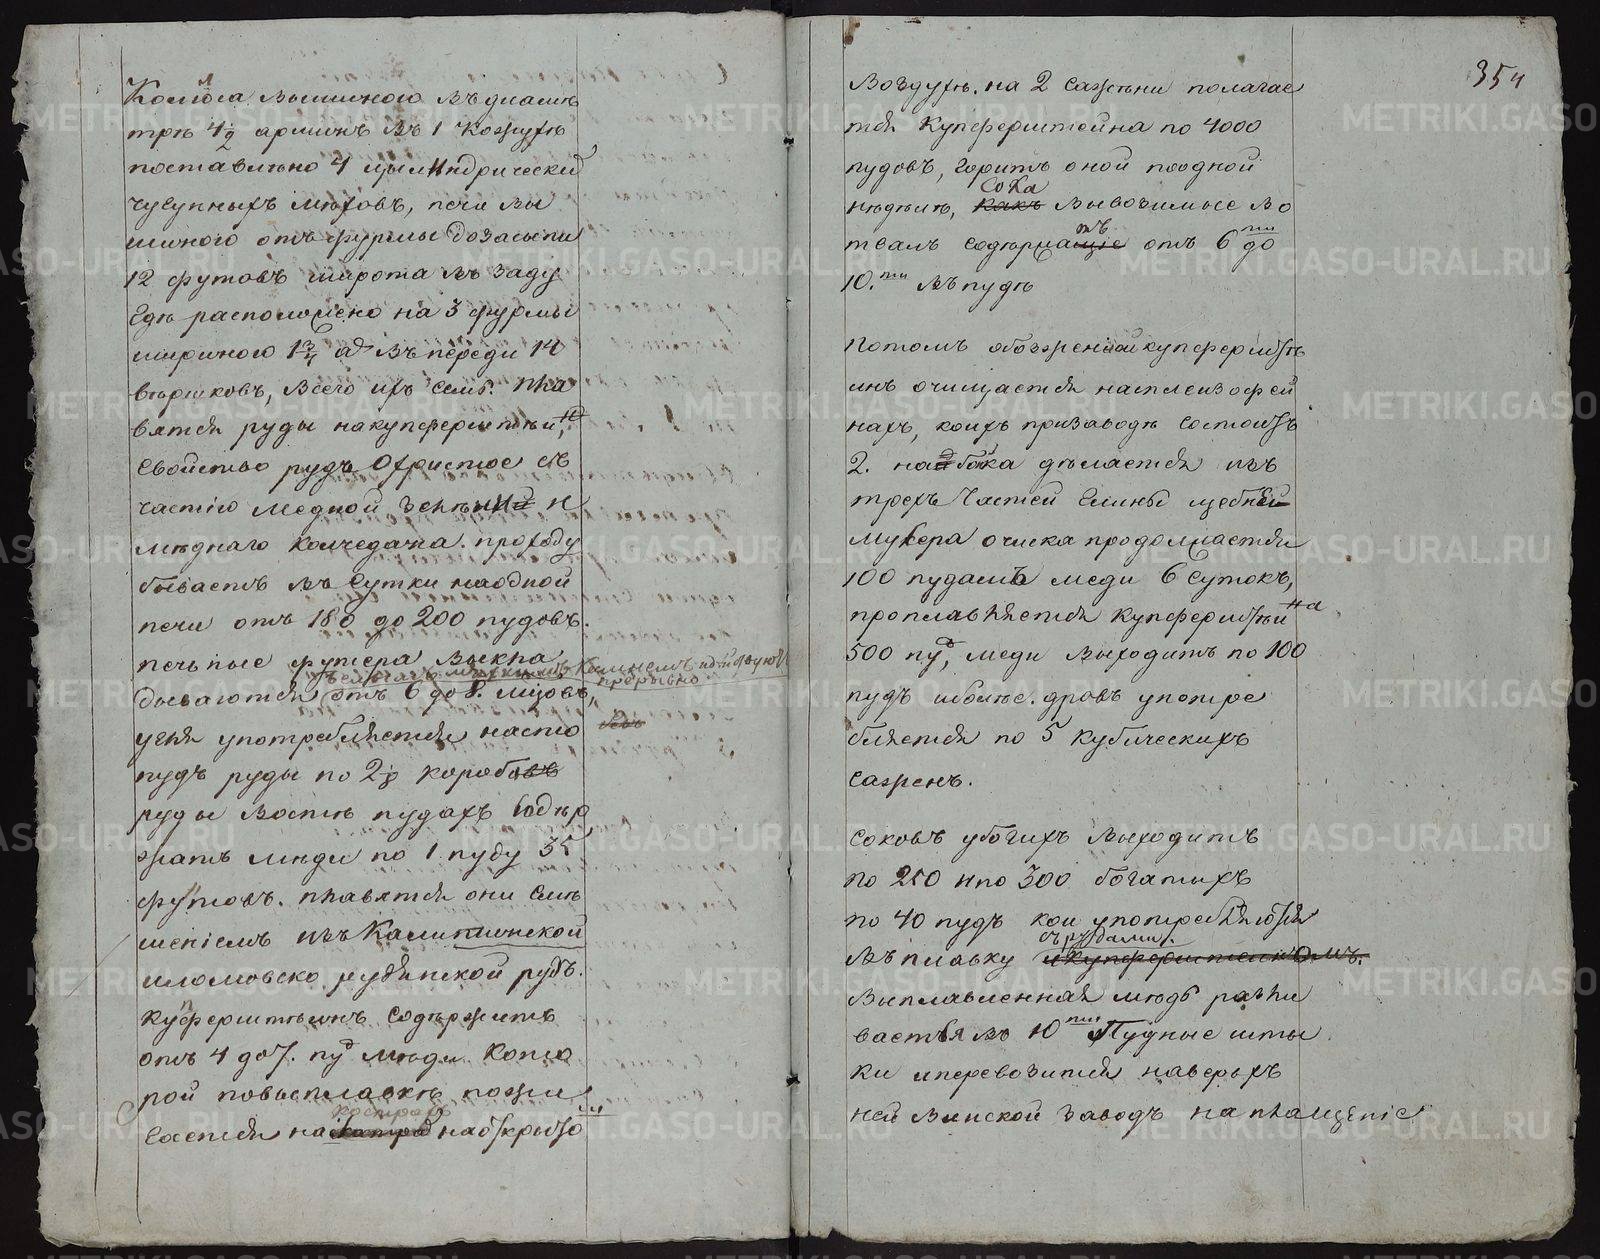 Колеса вышиною въ диаме
тре 4 1/2 аршинъ въ 1 кожухѣ
поставлено 4 цылиндрически
чугунныхъ мѣховъ, печи вы
шиною отъ фурмы до засыпи
12 футовъ широта въ заду
гдѣ расположено на 3 фурмы
шириною 1 3/4 ар въ переди 14
вершковъ, всего ихъ семь. пла
вятся руды на купферштеин,
свойство рудъ Охристое съ
частію медной зелени и
мѣднаго колчедана. проходу
бываетъ въ сутки на одной
печи отъ 180 до 200 пудовъ.
печьные футера выкла
дываются отъ 6 до 8. мцовъ,
угля употребляется на сто
пудъ руды по 2 1/2 короба
руды во сте пудахъ содер
жатъ меди по 1 пуду 35
фунтовъ. плавятся они сме
шеніемъ изъ
рудянской рудъ.
купферштеинъ содержитъ
отъ 4 до 7. пуд меди. кото
рой по выплавкѣ пожи
гается на кострахъ на открыто
354
воздухѣ. на 2 сажени полагае
тся купферштейна по 4000
пудовъ, горитъ оной по одной
недѣле, сока вывозимые во
отвалъ содержатъ отъ 6 ти до
10. ти въ пуде
потомъ обозженной купферште
инъ очищается на сплейзофей
нахъ, коихъ при заводе состоитъ
2. набойка делается изъ
трехъ частей глины щебня
мусера очиска продолжается
100 пудамъ меди 6 сутокъ,
проплавляется купферштеина
500 пуд, меди выходитъ по 100
пудъ и более. дровъ употре
бляется по 5 кубическихъ
саженъ.
соковъ убогихъ выходитъ
по 250 и по 300 богатыхъ
по 40 пудъ кои употребляются
въ плавку съ рудами.
Выплавленная медь разли
вается въ 10 ти Пудные шты
ки и перевозится на верьхъ
ней заводъ на плащеніе